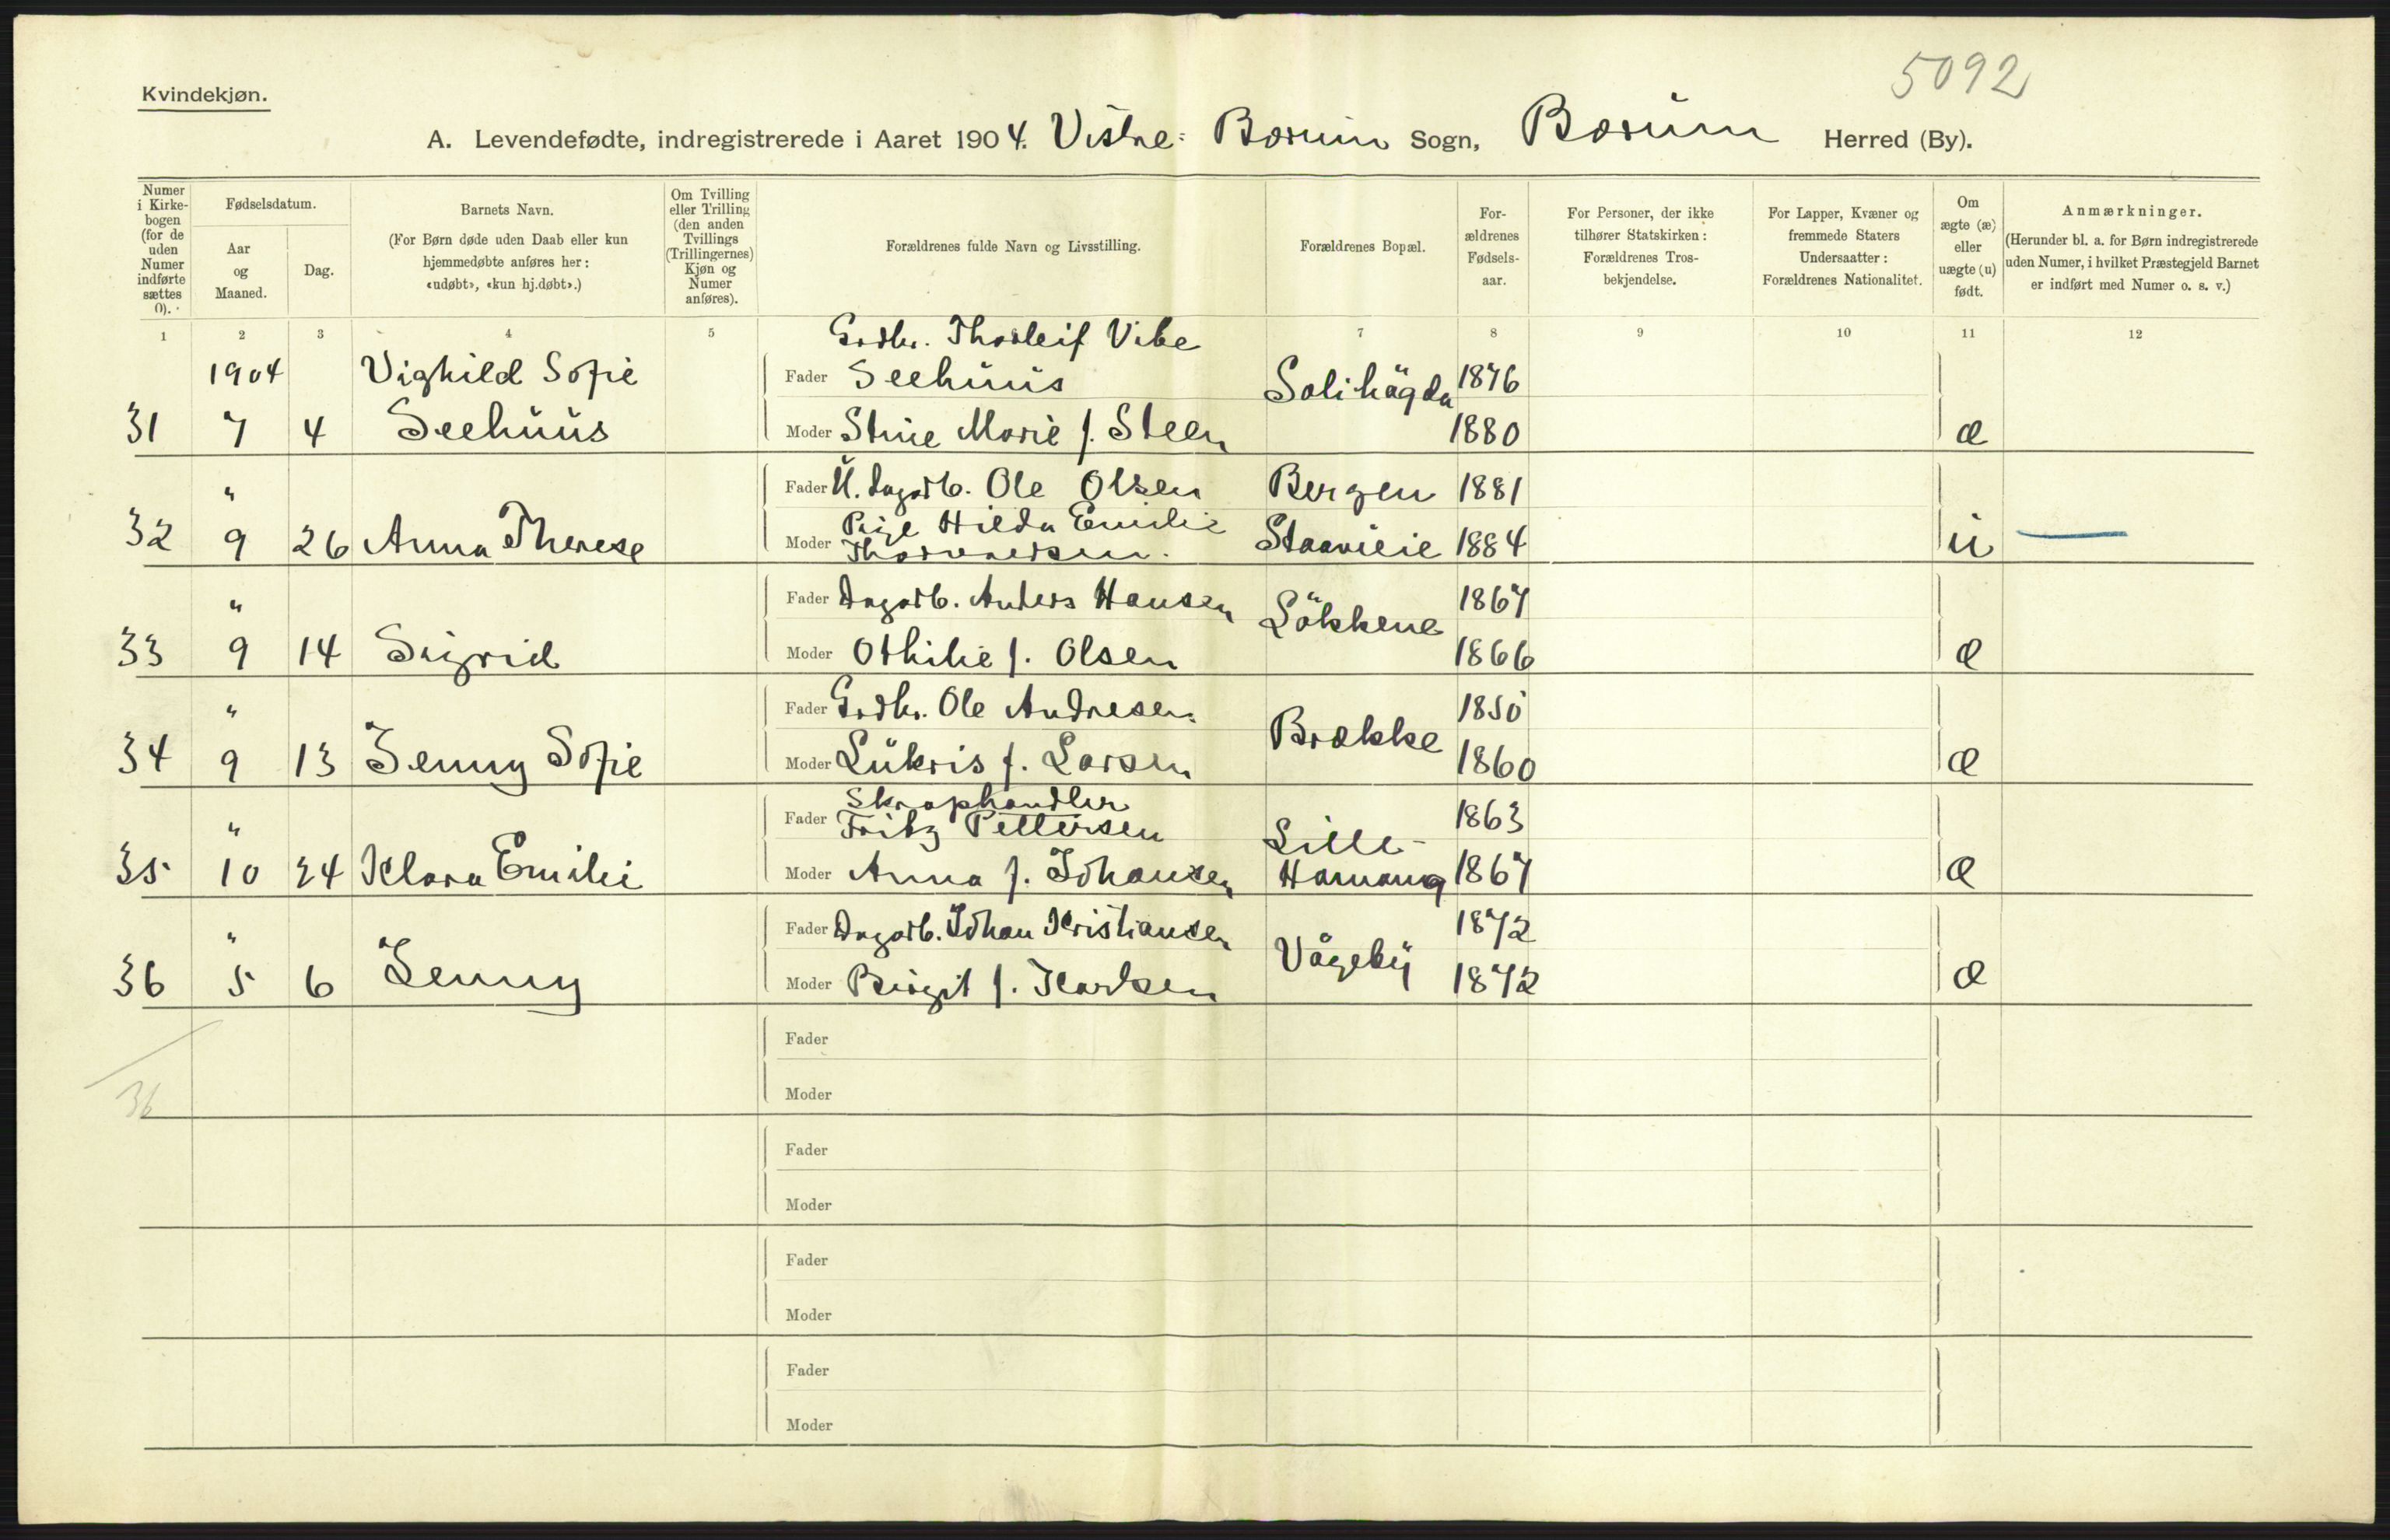 5092
Kvindekjøn.
A. Levendefødte, indregistrerede i Aaret 1904. Vestre Bærum Sogn, Bærum Herred (By).
Numer i Kirkebogen (for de uden Numer indførte sættes 0).
Fødselsdatum.
Aar og Maaned.
Dag.
Barnets Navn.
(For Børn døde uden Daab eller kun hjemmedøbte anføres her: «udøbt», «kun hj.døbt».)
Om Tvilling eller Trilling (den anden Tvillings (Trillingernes) Kjøn og Numer anføres).
Forældrenes fulde Navn og Livsstilling.
Forældrenes Bopæl.
Forældrenes Fødselsaar.
For Personer, der ikke tilhører Statskirken: Forældrenes Trosbekjendelse.
For Lapper, Kvæner og fremmede Staters Undersaatter: Forældrenes Nationalitet.
Om ægte (æ) eller uægte (u) født.
Anmærkninger.
(Herunder bl. a. for Børn indregistrerede uden Numer, i hvilket Præstegjeld Barnet er indført med Numer o. s. v.)
1 2 3 4 5 7 8 9 10 11 12
Grdbr. Thorleif Vibe
1904 Vighild Sofie Fader Seehuus Solihögda 1876
31 7 4 Seehuus Moder Stine Marie f. Steen 1880 æ
" Fader U. Dagarb. Ole Olsen Bergen 1881
Pige Hilda Emilie
32 9 26 Anna Therese Moder Thorvaldsen. 1884 u —
" Fader Dagarb. Anders Hansen Lökkene 1867
33 9 14 Sigrid Moder Othilie f. Olsen 1866 æ
" Fader Grdbr. Ole Andresen Brække 1850
34 9 13 Jenny Sofie Moder Lukris f. Larsen 1860 æ
Skraphandler
" Fader Fritz Pettersen Lille- 1863
35 10 24 Klara Emilie Moder Anna f. Johansen Hamang 1867 æ
" Fader Dagarb. Johan Kristiansen Vågeby 1872
36 5 6 Jenny Moder Birgit f. Karlsen 1872 æ
Fader
36 Moder
Fader
Moder
Fader
Moder
Fader
Moder